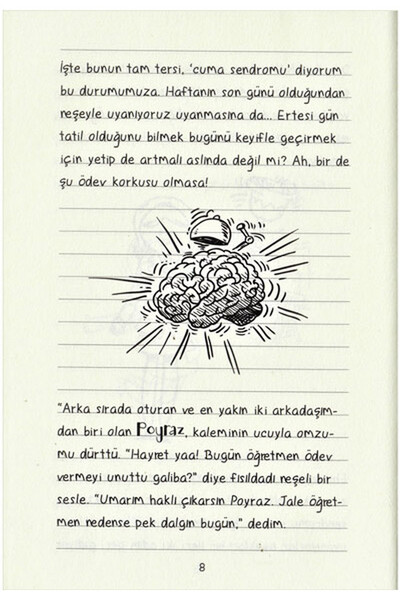 İşte bunun tam tersi, 'cuma sendromu' diyorum
bu durumumuza. Haftanın son günü olduğundan
neşeyle uyanıyoruz uyanmasına da... Ertesi gün
tatil olduğunu bilmek bugünü keyifle geçirmek
için yetip de artmalı aslında değil mi? Ah, bir de
şu ödev korkusu olmasa!
"Arka sırada oturan ve en yakın iki arkadaşım-
dan biri olan Poyraz, kaleminin ucuyla omzu-
mu dürttü. "Hayret yaa! Bugün öğretmen ödev
vermeyi unuttu galiba?" diye fısıldadı neşeli bir
sesle. "Umarım haklı çıkarsın Poyraz. Jale öğret-
men nedense pek dalgın bugün," dedim.
8